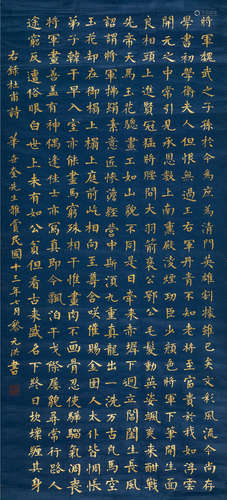 將軍魏武之子孫於今為庶為清門英雄割據雖已矣文彩風流今尚存
學書初學衛夫人但恨無過王右軍丹青不知老將至富貴於我如浮雲
開元之中常引見承恩數上南薰殿凌煙功臣少顏色將軍下筆開生面
良相頭上進賢冠猛將腰間大羽箭褒公鄂公毛髮動英姿颯爽來酣戰
先帝天馬玉花驄畫工如山貌不同是日牽來赤墀下迥立閶闔生長風
詔謂將軍拂絹素意匠慘澹經營中斯須九重真龍出一洗萬古凡馬空
玉花却在御榻上榻上庭前屹相向至尊含笑催賜金圉人太僕皆惆悵
弟子韓幹早入室亦能畫馬窮殊相幹惟畫肉不畫骨忍使驊騮氣凋喪
將軍畫善蓋有神逢佳士亦寫真即今飄泊干戈際屢貌尋常行路人
途窮反遭俗眼白世上未有如公貧但看古來盛名下終日坎壈纏其身
右錄杜甫詩 金先生雅賞民國十三年七月 黎元洪書